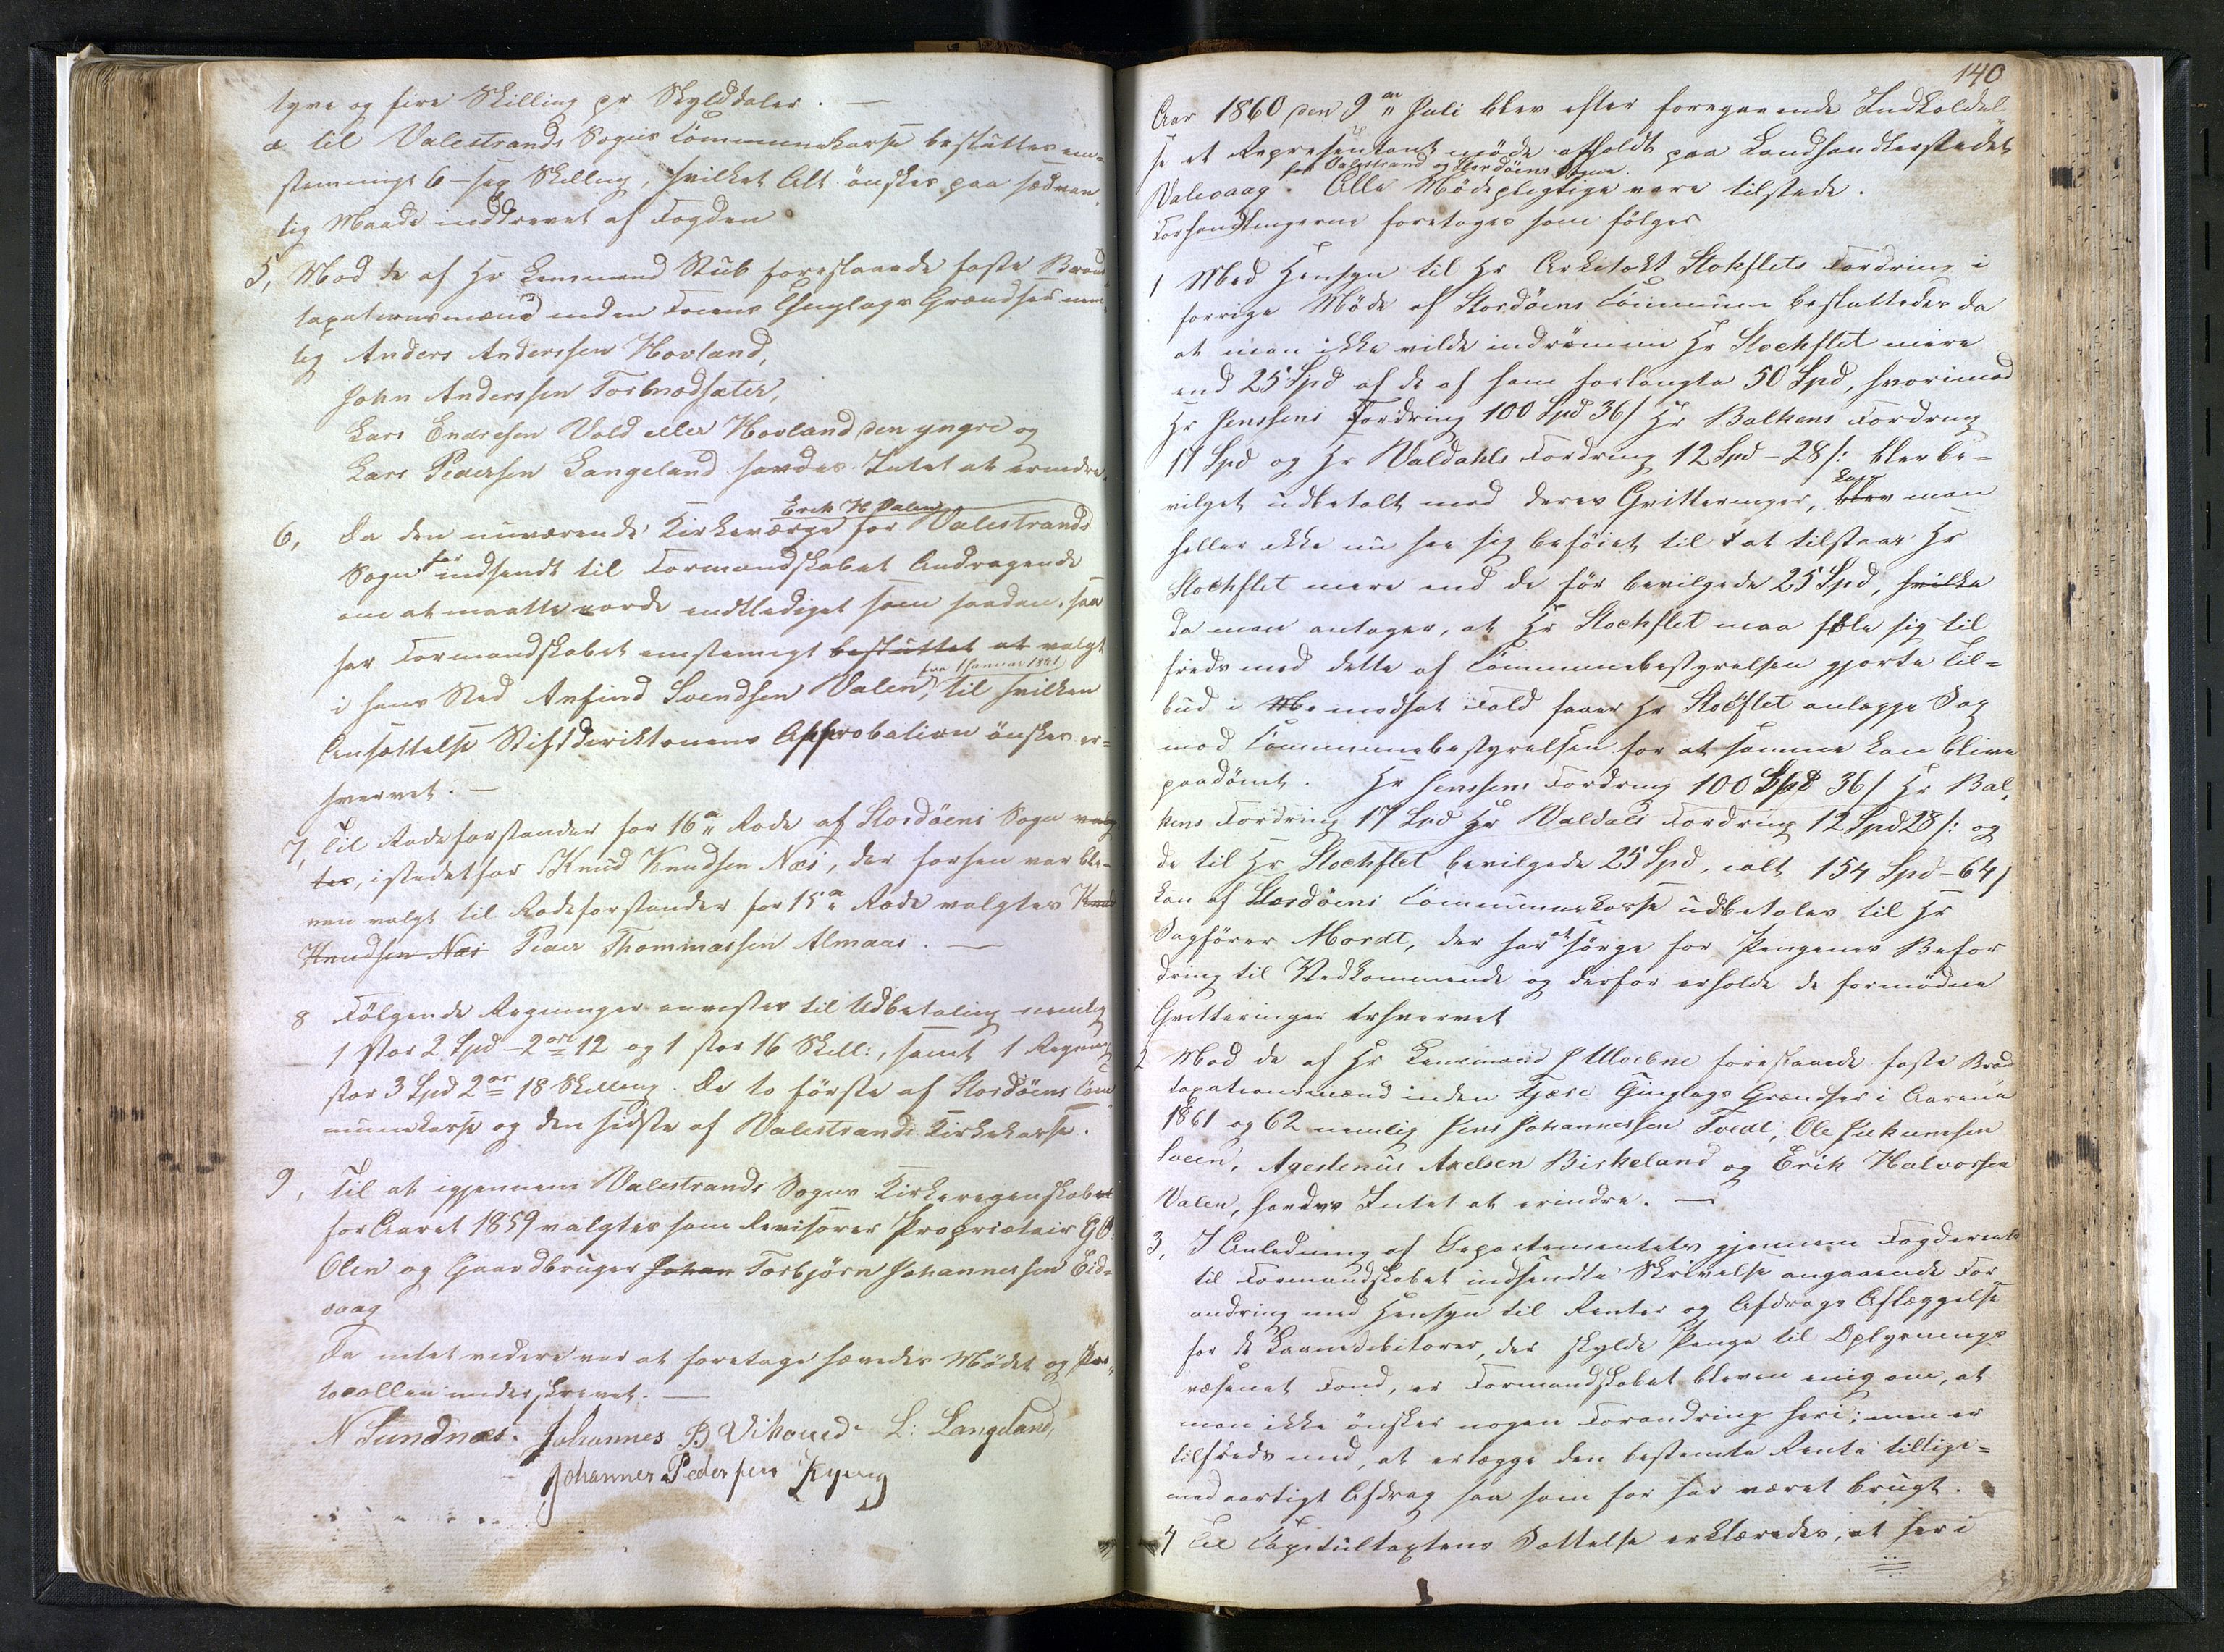 tyve og fire Skilling pr Skylddaler. —
a til Valestrands Sogns Communekasse besluttes een-
stemmigt 6 – sex Skilling, hvilket Alt ønskes paa sædvan-
lig Maade inddrevet af Fogden
5, Mod de af Hr Lensmand Stub foreslaaede faste Brand-
taxationsmænd inden Foiens Thinglags Grændser nem-
lig Anders Anderssen Hovland,
John Anderssen Torbnodsæter,
Lars Endresen Vold eller Hovland den yngre og
Lars Pedersen Langeland havdes Intet at erindre.
Erik H Valen
6, Da den nuværende Kirkeværge for Valestrands
Sogn har indsendt til Formandskabet Andragende
om at maatte vorde entlediget som saadan, saa
har Formandskabet enstemigt besluttet at valgt
fra 1 Januar 1861
i hans Sted Anfind Svendsen Valen, til hvilken
Ansættelse Stiftsdirektionens Approbation ønskes er-
hvervet. —
7, Til Rodeforstander for 16de Rode af Stordøens Sogn valg
tes, istedetfor Knud Knudsen Næs, der forhen var ble-
ven valgt til Rodeforstander for 15de Rode valgtes Knud
Knudsen Næs Peder Thommassen Almaas. —
8 Følgende Regninger anvistes til Udbetaling nemlig
1 stor 2 Spd – 2 ort 12 og 1 stor 16 Skill:, samt 1 Regning
stor 3 Spd 2 ort 18 Skilling. De to første af Stordøens Com
munekasse og den sidste af Valestrands Kirkekasse.
9, Til at igjennem Valestrands Sogns Kirkeregenskabet
for Aaret 1859 valgtes som Revisorer Proprietair G O
Olen og Gaardbruger Johan Torbjørn Johannessen Eid-
vaag
Da intet videre var at foretage hævedes Mødet og Pro-
tocollen underskrevet. —
N Sundnæs. Johannes B Vihoved L: Langeland,
Johannes Pedersen Kyvig
140
Aar 1860 den 9de Juli blev efter foregaaende Indkaldel-
se et Repræsentantmøde afholdt paa Landhandlerstedet
for Valestrand og Stordøens Sogne.
Valevaag. Alle Mødepligtige vare tilstede.
Forhandlingerne foretoges som følger
1 Med Hensyn til Hr Arkitekt Stokflets Fordring i
forrige Møde af Stordøens Commune besluttedes da
at man ikke vilde indrømme Hr Stockflet mere
end 25 Spd af de af ham forlangte 50 Spd, hvorimod
Hr Jenssens Fordring 100 Spd 36 / Hr Balkens Fordring
17 Spd og Hr Valdahls Fordring 12 Spd – 28 /: blev be-
vilget udbetalt mod deres Qvitteringer,
kan
blev man
heller ikke nu see sig beføiet til at tilstaar Hr
Stockflet mere end de før bevilgede 25 Spd, hvilke
da man antager, at Hr Stockflet maa føle sig til
freds med dette af Communebestyrelsen gjorte Til-
bud i modsat Fald faaer Hr Stockflet anlægge Sag
mod Communebestyrelsen for at samme kan blive
paadømt. Hr Jenssens Fordring 100 Spd 36 / Hr Bal-
kens Fordring 17 Spd Hr Valdals Fordring 12 Spd 28 /: og
de til Hr Stockflet bevilgede 25 Spd, ialt 154 Spd – 64 /
kan af Stordøens Communekasse udbetales til Hr
Sagfører Mordt, der har at sørge for Pengenes Befor
dring til Vedkommende og derfor erholde de fornødne
Qvitteringer erhvervet
2 Mod de af Hr Lensmand foreslaaede faste Brand
taxationsmænd inden Fjære Thinglags Grændser i Aarene
1861 og 62 nemlig Jens Johannessen Tvedt, Ole
Sveen, Agestenus Axelsen Birkeland og Erik Halvorsen
Valen, havdes Intet at erindre. —
3, I Anledning af Departementets gjennem Fogderiet
til Formandskabet indsendte Skrivelse angaaende For
andring med Hensyn til Renter og Afdrags Aflæggelse
for de Laanedebitorer, der skylde Penge til Oplysnings
væsenets Fond, er Formandskabet bleven enig om, at
man ikke ønsker nogen Forandring heri; men er
tilfreds med, at erlægge den bestemte Rente tillige-
med aarligt Afdrag saa som før har været brugt.
4 Til Capitultaxtens Sættelse erklæredes, at her i